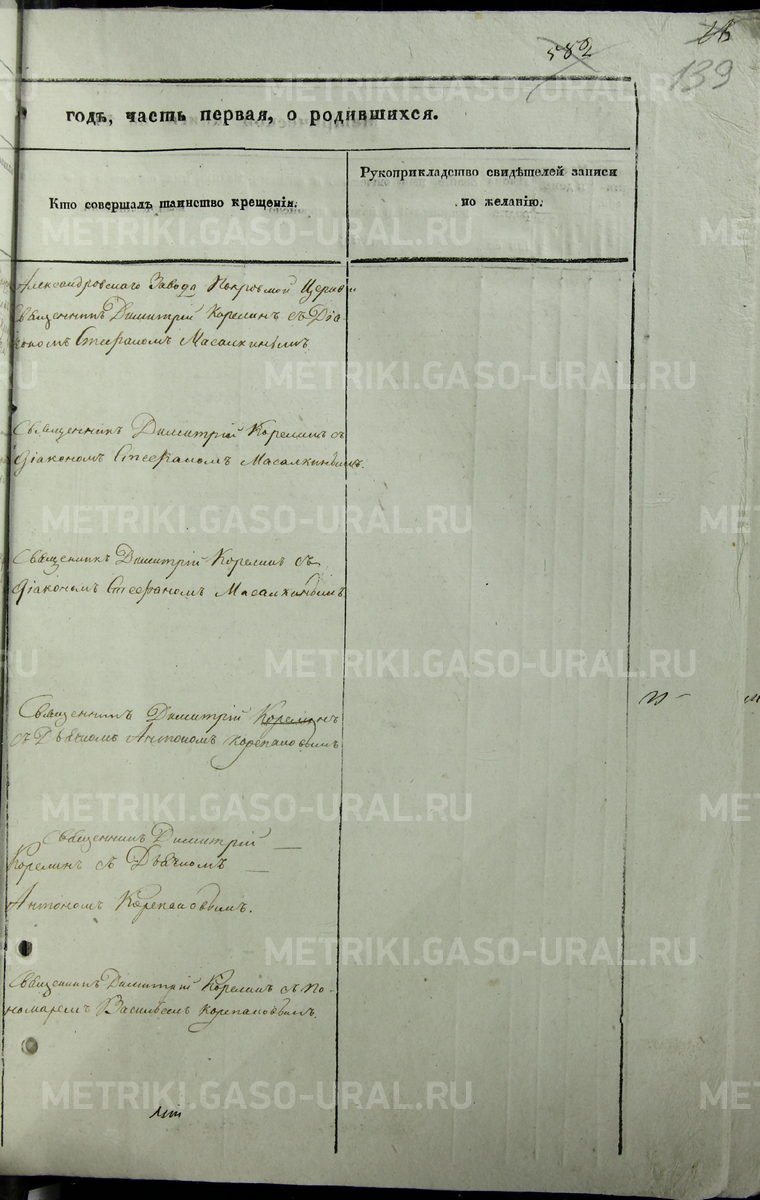 582
139
годъ, часть первая, о родившихся.
Кто совершалъ таинство крещенія.
Рукоприкладство свидѣтелей записи
по желанію.
Александровскаго Завода Покровской Церкви
Священникъ Димитрій Корелинъ съ Діа
кономъ Стефаномъ Масалкинымъ.
Священникъ Димитрій Корелинъ съ
Діакономъ Стефаномъ Масалкинымъ.
Священникъ Димитрій Корелинъ съ
Діакономъ Стефаномъ Масалкинымъ
Священникъ Димитрій Корелинъ
съ Дьячкомъ Антономъ Корепановымъ
Священникъ Димитрій
Корелинъ съ Дьячкомъ
Антономъ Корепановымъ.
Священникъ Димитрій Корелинъ съ По-
номаремъ Васильемъ Корепановымъ.
METRIKI.GASO-URAL.RU